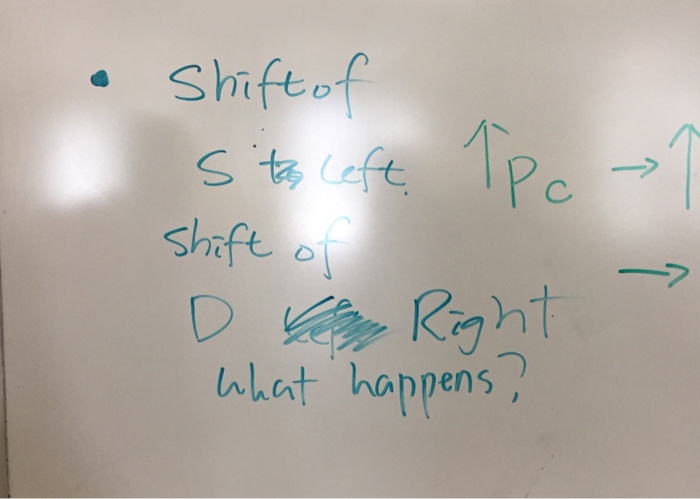 • Shift of
S to Left. ↑Pc → ↑
shift of
→
D Right
what happens?